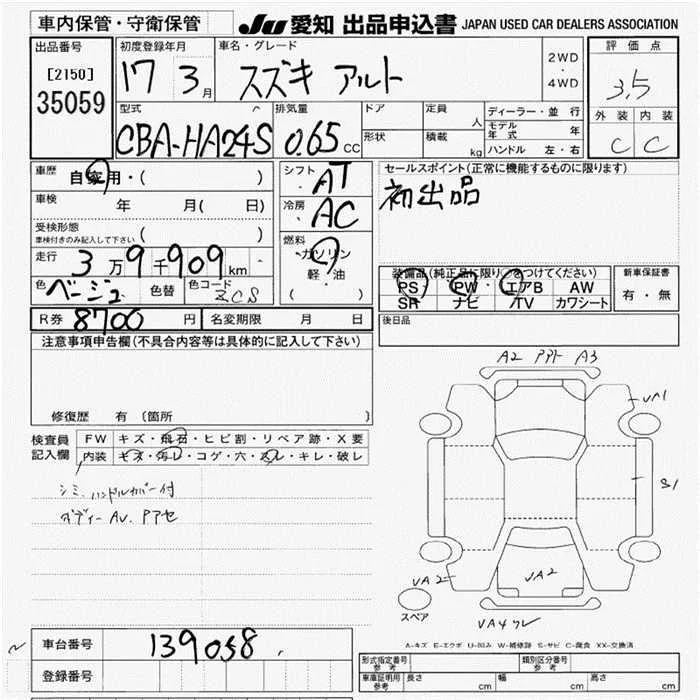 車内保管・守衛保管
JU 愛知 出品申込書 JAPAN USED CAR DEALERS ASSOCIATION
出品番号
[2150]
35059
初度登録年月
17 3月
車名・グレード
スズキ アルト
2WD
・
4WD
評価点
3.5
外装 内装
C C
型式
CBA-HA24S
排気量
0.65 CC
ドア
形状
定員 人
積載 kg
ディーラー・並行
モデル年式 年
ハンドル 左・右
車歴 自家用・( )
車検 年 月( 日)
受検形態
車検付きのみ記入して下さい ( )
走行 3万9千909km
色 ベージュ 色替 色コード ZCS
シフト
AT
冷房
AC
燃料
ガソリン
軽・油
( )
セールスポイント(正常に機能するものに限ります)
初出品
装備品(純正品に限り○をつけてください)
PS PW エアB AW
SR ナビ TV カワシート
新車保証書
有・無
R券 8700円 名変期限 月 日
後日品
注意事項申告欄(不具合内容等は具体的に記入して下さい)
修復歴 有 〔箇所 〕
検査員
記入欄
FW キズ・飛石・ヒビ割・リペア跡・X要
内装 キズ・汚レ・コゲ・穴・スレ・キレ・破レ
シミ、ハンドルカバー付
ボディー AU、PアセA2 PアセA3
UA1
S1
UA2
UA2
スペア
UA4ワレ
A-キズ E-エクボ U-凹み W-補修跡 S-サビ C-腐食 XX-交換済
車台番号 139058
登録番号
型式指定番号
参考
類別区分番号
参考
車庫証明用
参考
長さ cm 幅 cm 高さ cm